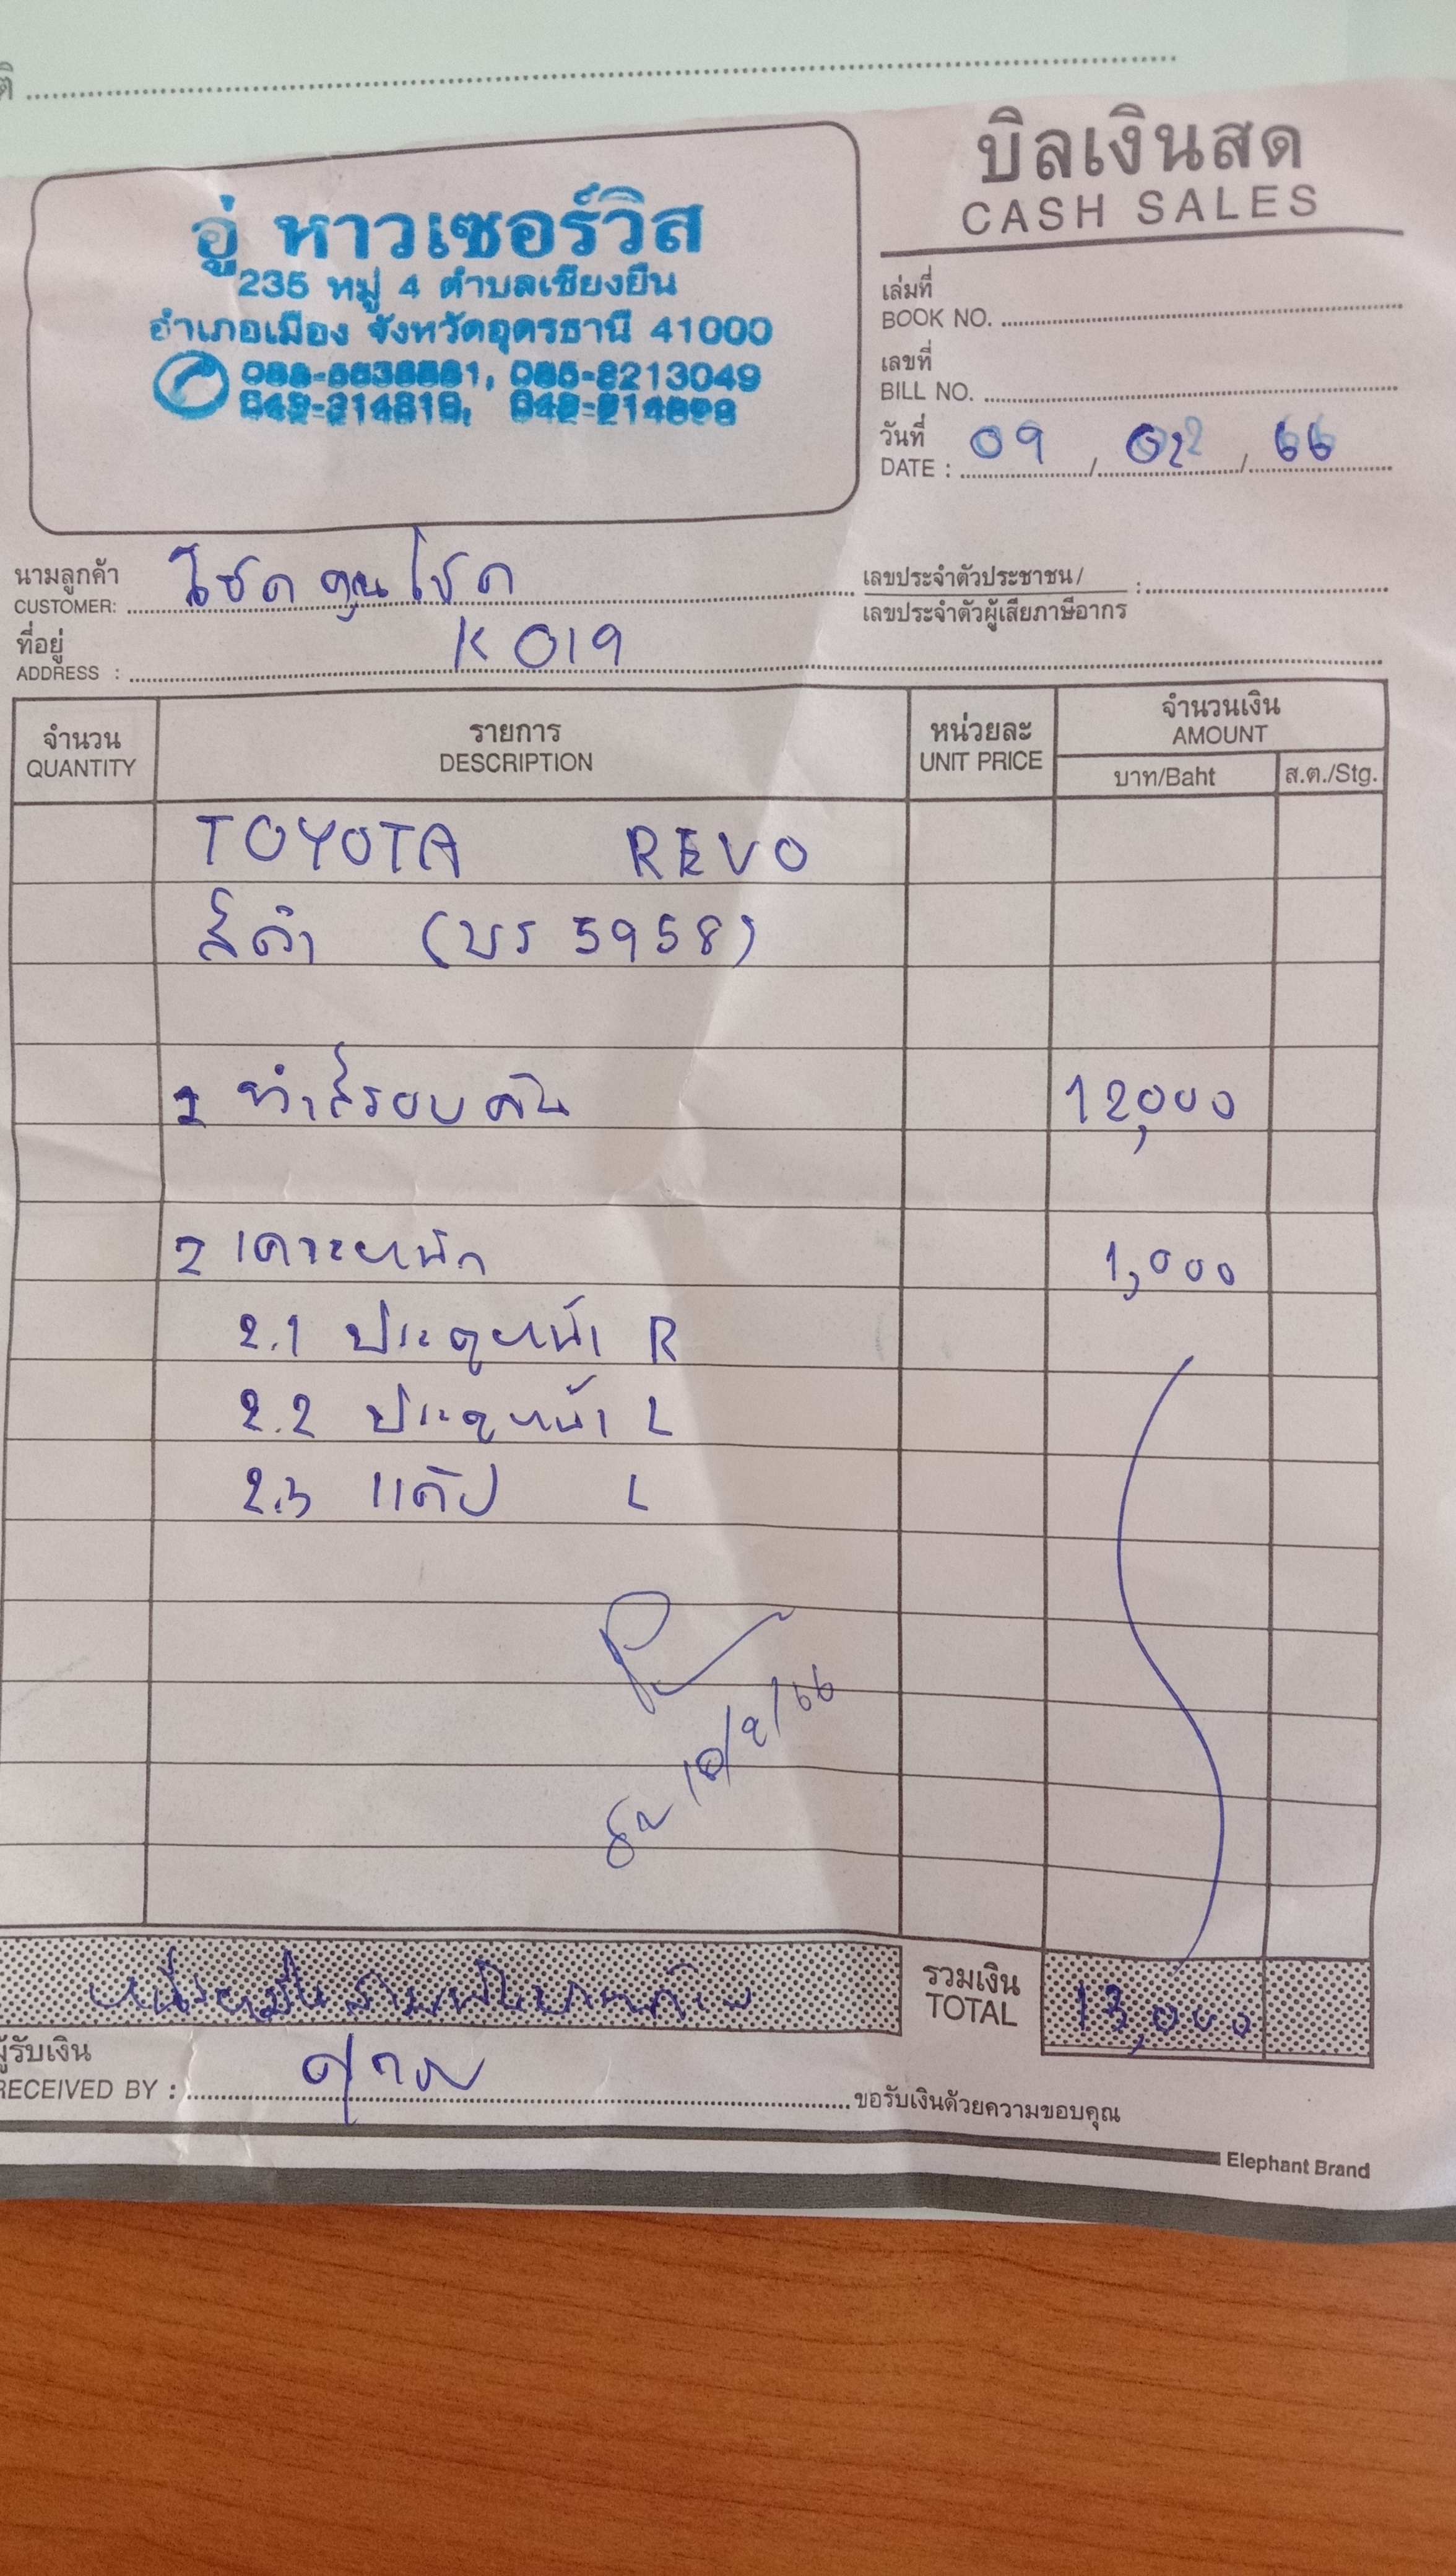 บิลเงินสด
CASH SALES
อู่ หาวเซอร์วิส
235 หมู่ 4 ตำบลเชียงยืน
อำเภอเมือง จังหวัดอุดรธานี 41000
085-8213049
เล่มที่
BOOK NO.
เลขที่
BILL NO.
วันที่
DATE : 09 / 02 / 66
นามลูกค้า
CUSTOMER: โชคคูณโชค
เลขประจำตัวประชาชน /
เลขประจำตัวผู้เสียภาษีอากร :
ที่อยู่
ADDRESS : K 019
จำนวน
QUANTITY
รายการ
DESCRIPTION
หน่วยละ
UNIT PRICE
จำนวนเงิน
AMOUNT
บาท/Baht
ส.ต./Stg.
TOYOTA REVO
สีดำ (บร 5958)
1 ทำสีรอบคัน 12,000
2 เคาะหนัก 1,000
2.1 ประตูหน้า R
2.2 ประตูหน้า L
2.3 แค๊ป L
10/2/66
หนึ่งหมื่นสามพันบาทถ้วน
รวมเงิน
TOTAL 13,000
ผู้รับเงิน
RECEIVED BY :
ขอรับเงินด้วยความขอบคุณ
Elephant Brand